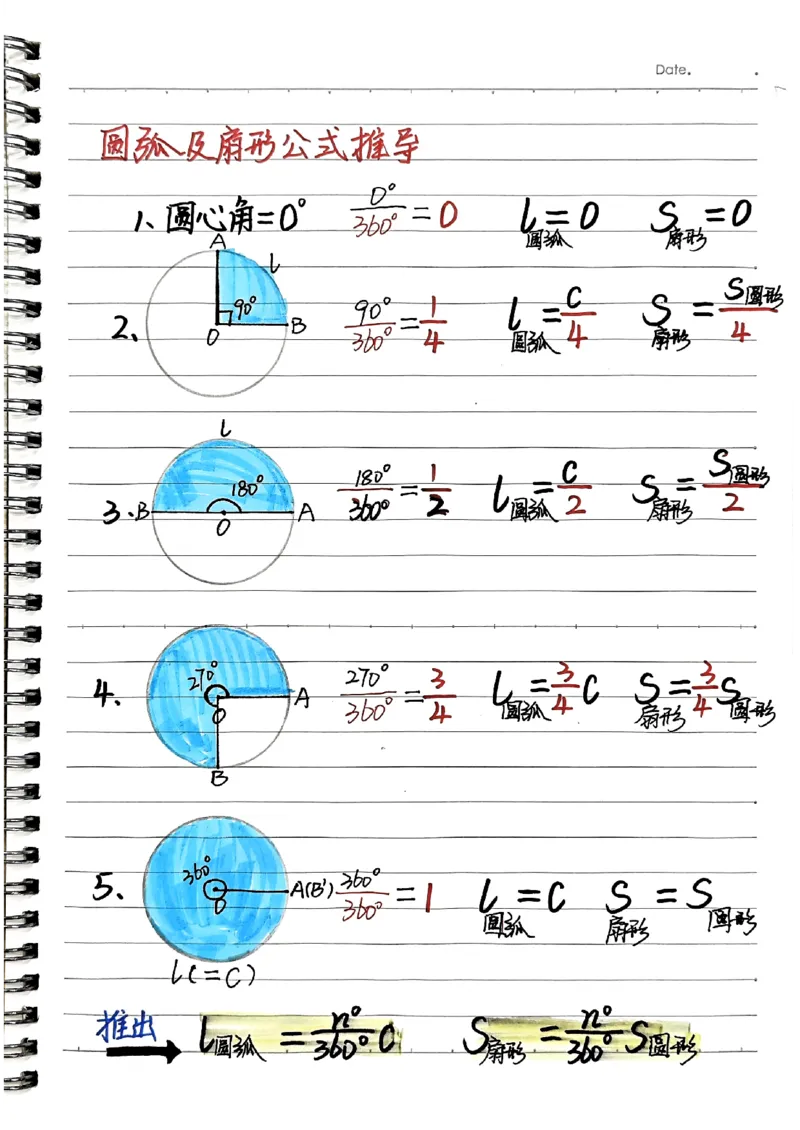 Date.
圆弧及扇形公式推导
1、圆心角=0° 0°/360°=0 l圆弧=0 S扇形=0
2、 A l 90° O B 90°/360°=1/4 l圆弧=C/4 S扇形=S圆形/4
3、 l 180° B O A 180°/360°=1/2 l圆弧=C/2 S扇形=S圆形/2
4、 270° O A B 270°/360°=3/4 l圆弧=3/4C S扇形=3/4S圆形
5、 360° O A(B') 360°/360°=1 l圆弧=C S扇形=S圆形
l(=C)
推出 l圆弧=n°/360°C S扇形=n°/360°S圆形